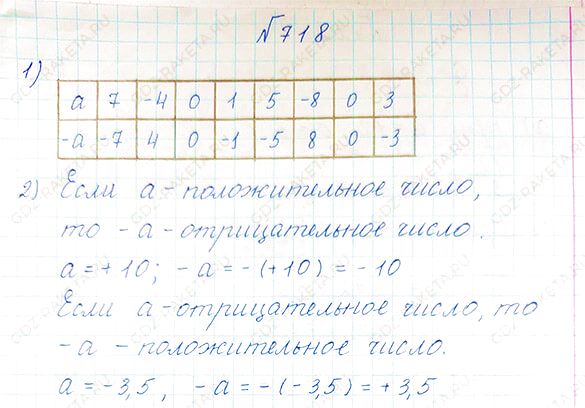 №718
1)
a 7 -4 0 1 5 -8 0 3
-a -7 4 0 -1 -5 8 0 -3
2) Если a - положительное число,
то - a - отрицательное число.
a = + 10; - a = - (+10) = - 10
Если a - отрицательное число, то
- a - положительное число.
a = - 3,5, - a = - (- 3,5) = + 3,5
GDZ-RAKETA.RU